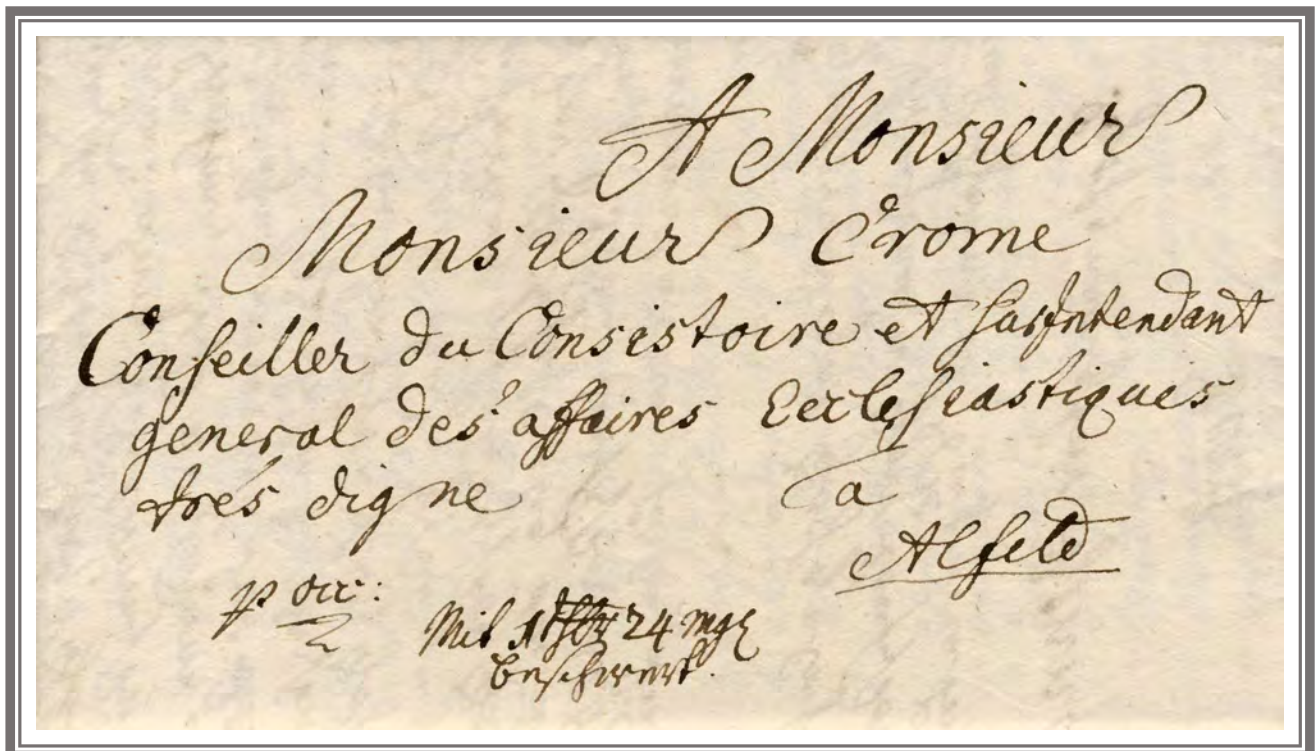 A Monsieur
Monsieur Crome
Conseiller du Consistoire et SurIntendant
general des affaires Ecclesiastiques
trés digne a
Alfeld
p occ:
Mit 1 24 mgr
beschwert.